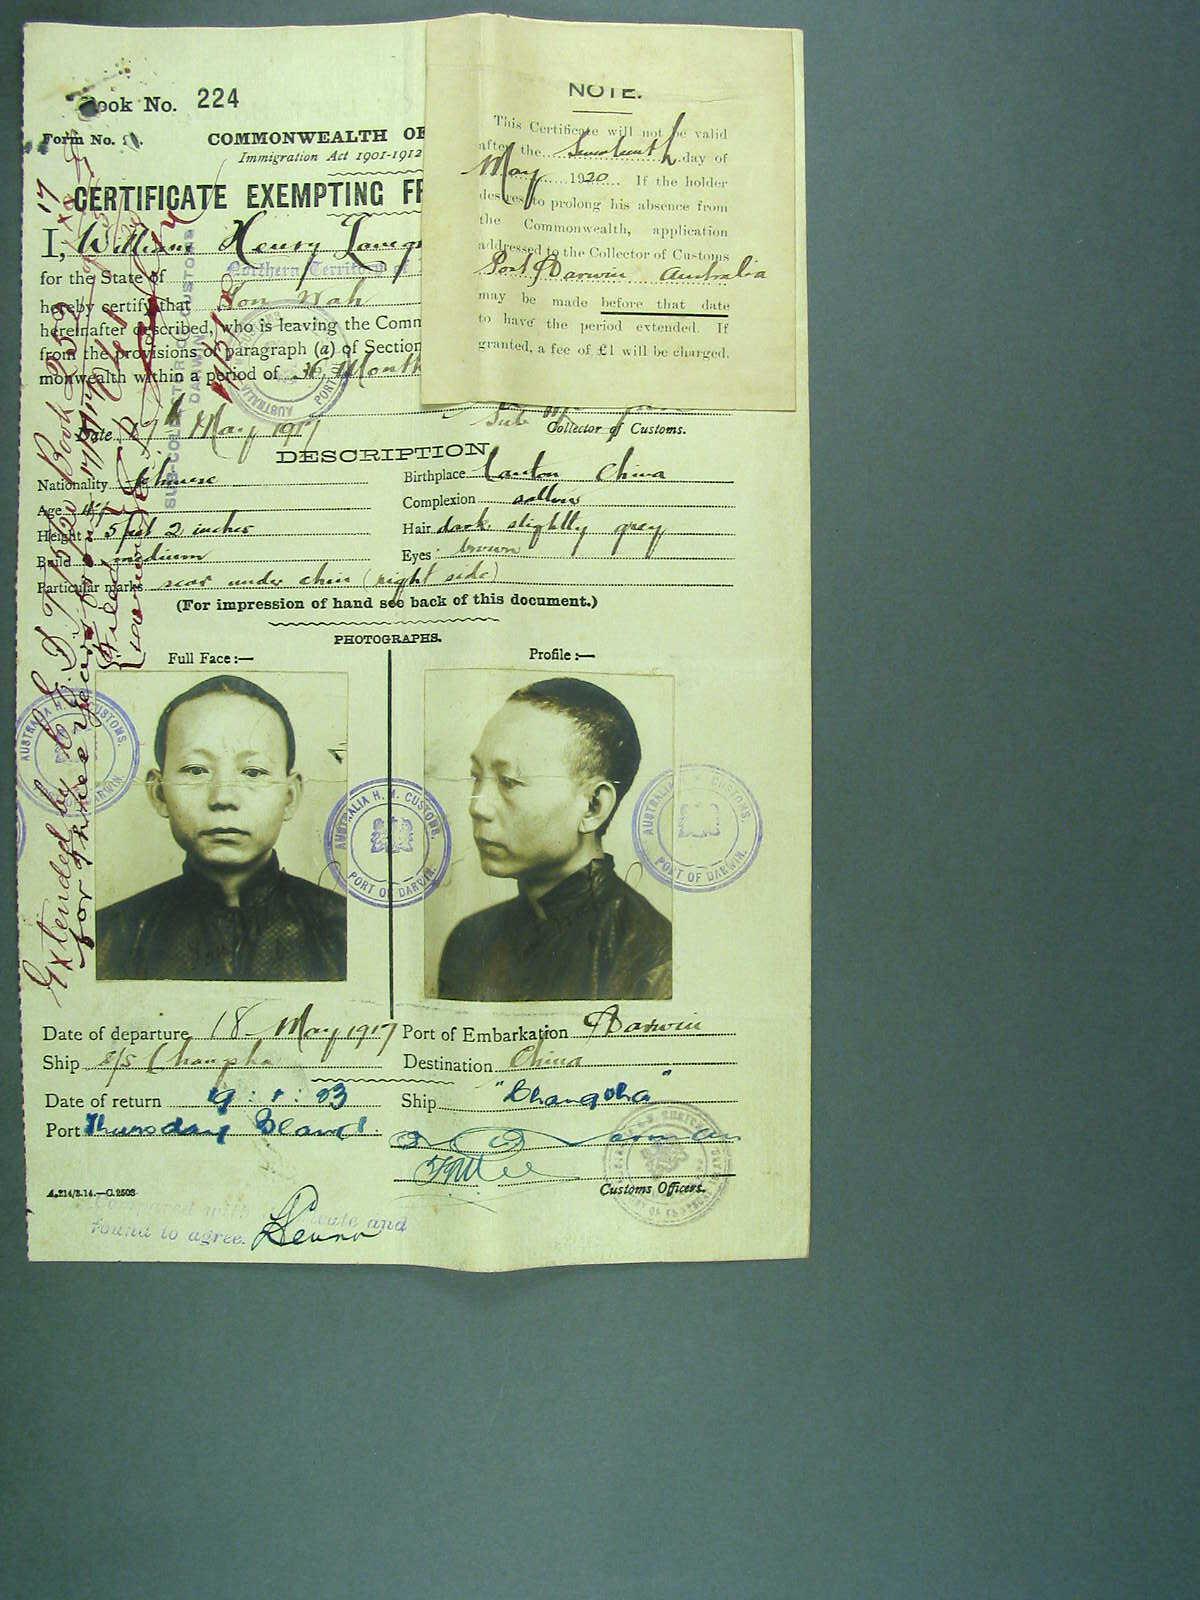 Book No. 224
Form No.
COMMONWEALTH OF
Immigration Act 1901-1912
CERTIFICATE EXEMPTING FR
I, William Henry
for the State of Northern Territory of
hereby certify that Wah
hereinafter described, who is leaving the Comm
from the provisions of paragraph (a) of Section
monwealth within a period of 36 Month
Date 17th May 1917
Sub
Collector of Customs.
NOTE.
This Certificate will not be valid
after the Seventeenth day of
May 1920 If the holder
desires to prolong his absence from
the Commonwealth, application
addressed to the Collector of Customs
Port Darwin Australia
may be made before that date
to have the period extended. If
granted, a fee of £1 will be charged.
SUB-COLLECTOR OF CUSTOMS
DARWIN
DESCRIPTION
Nationality Chinese
Birthplace Canton China
Age
Complexion sallow
Height 5 feet 2 inches
Hair dark slightly grey
Build medium
Eyes brown
Particular marks scar under chin (right side)
(For impression of hand see back of this document.)
PHOTOGRAPHS.
Full Face :—
Profile :—
Extended by C. E. D. T. Book 252
for three years from 17/5/17
AUSTRALIA H. M. CUSTOMS.
PORT OF DARWIN.
AUSTRALIA H. M. CUSTOMS.
PORT OF DARWIN.
AUSTRALIA H. M. CUSTOMS.
PORT OF DARWIN.
Date of departure 18 May 1917
Port of Embarkation Darwin
Ship s/s Changsha
Destination China
Date of return 19 : 1 : 23
Ship "Changsha"
Port Thursday Island
Customs Officers.
A.214/3.14.—C.2503
Compared with and
found to agree.